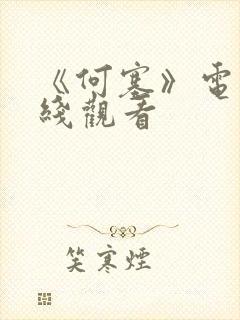 《何寒》電
綫觀看
笑寒煙